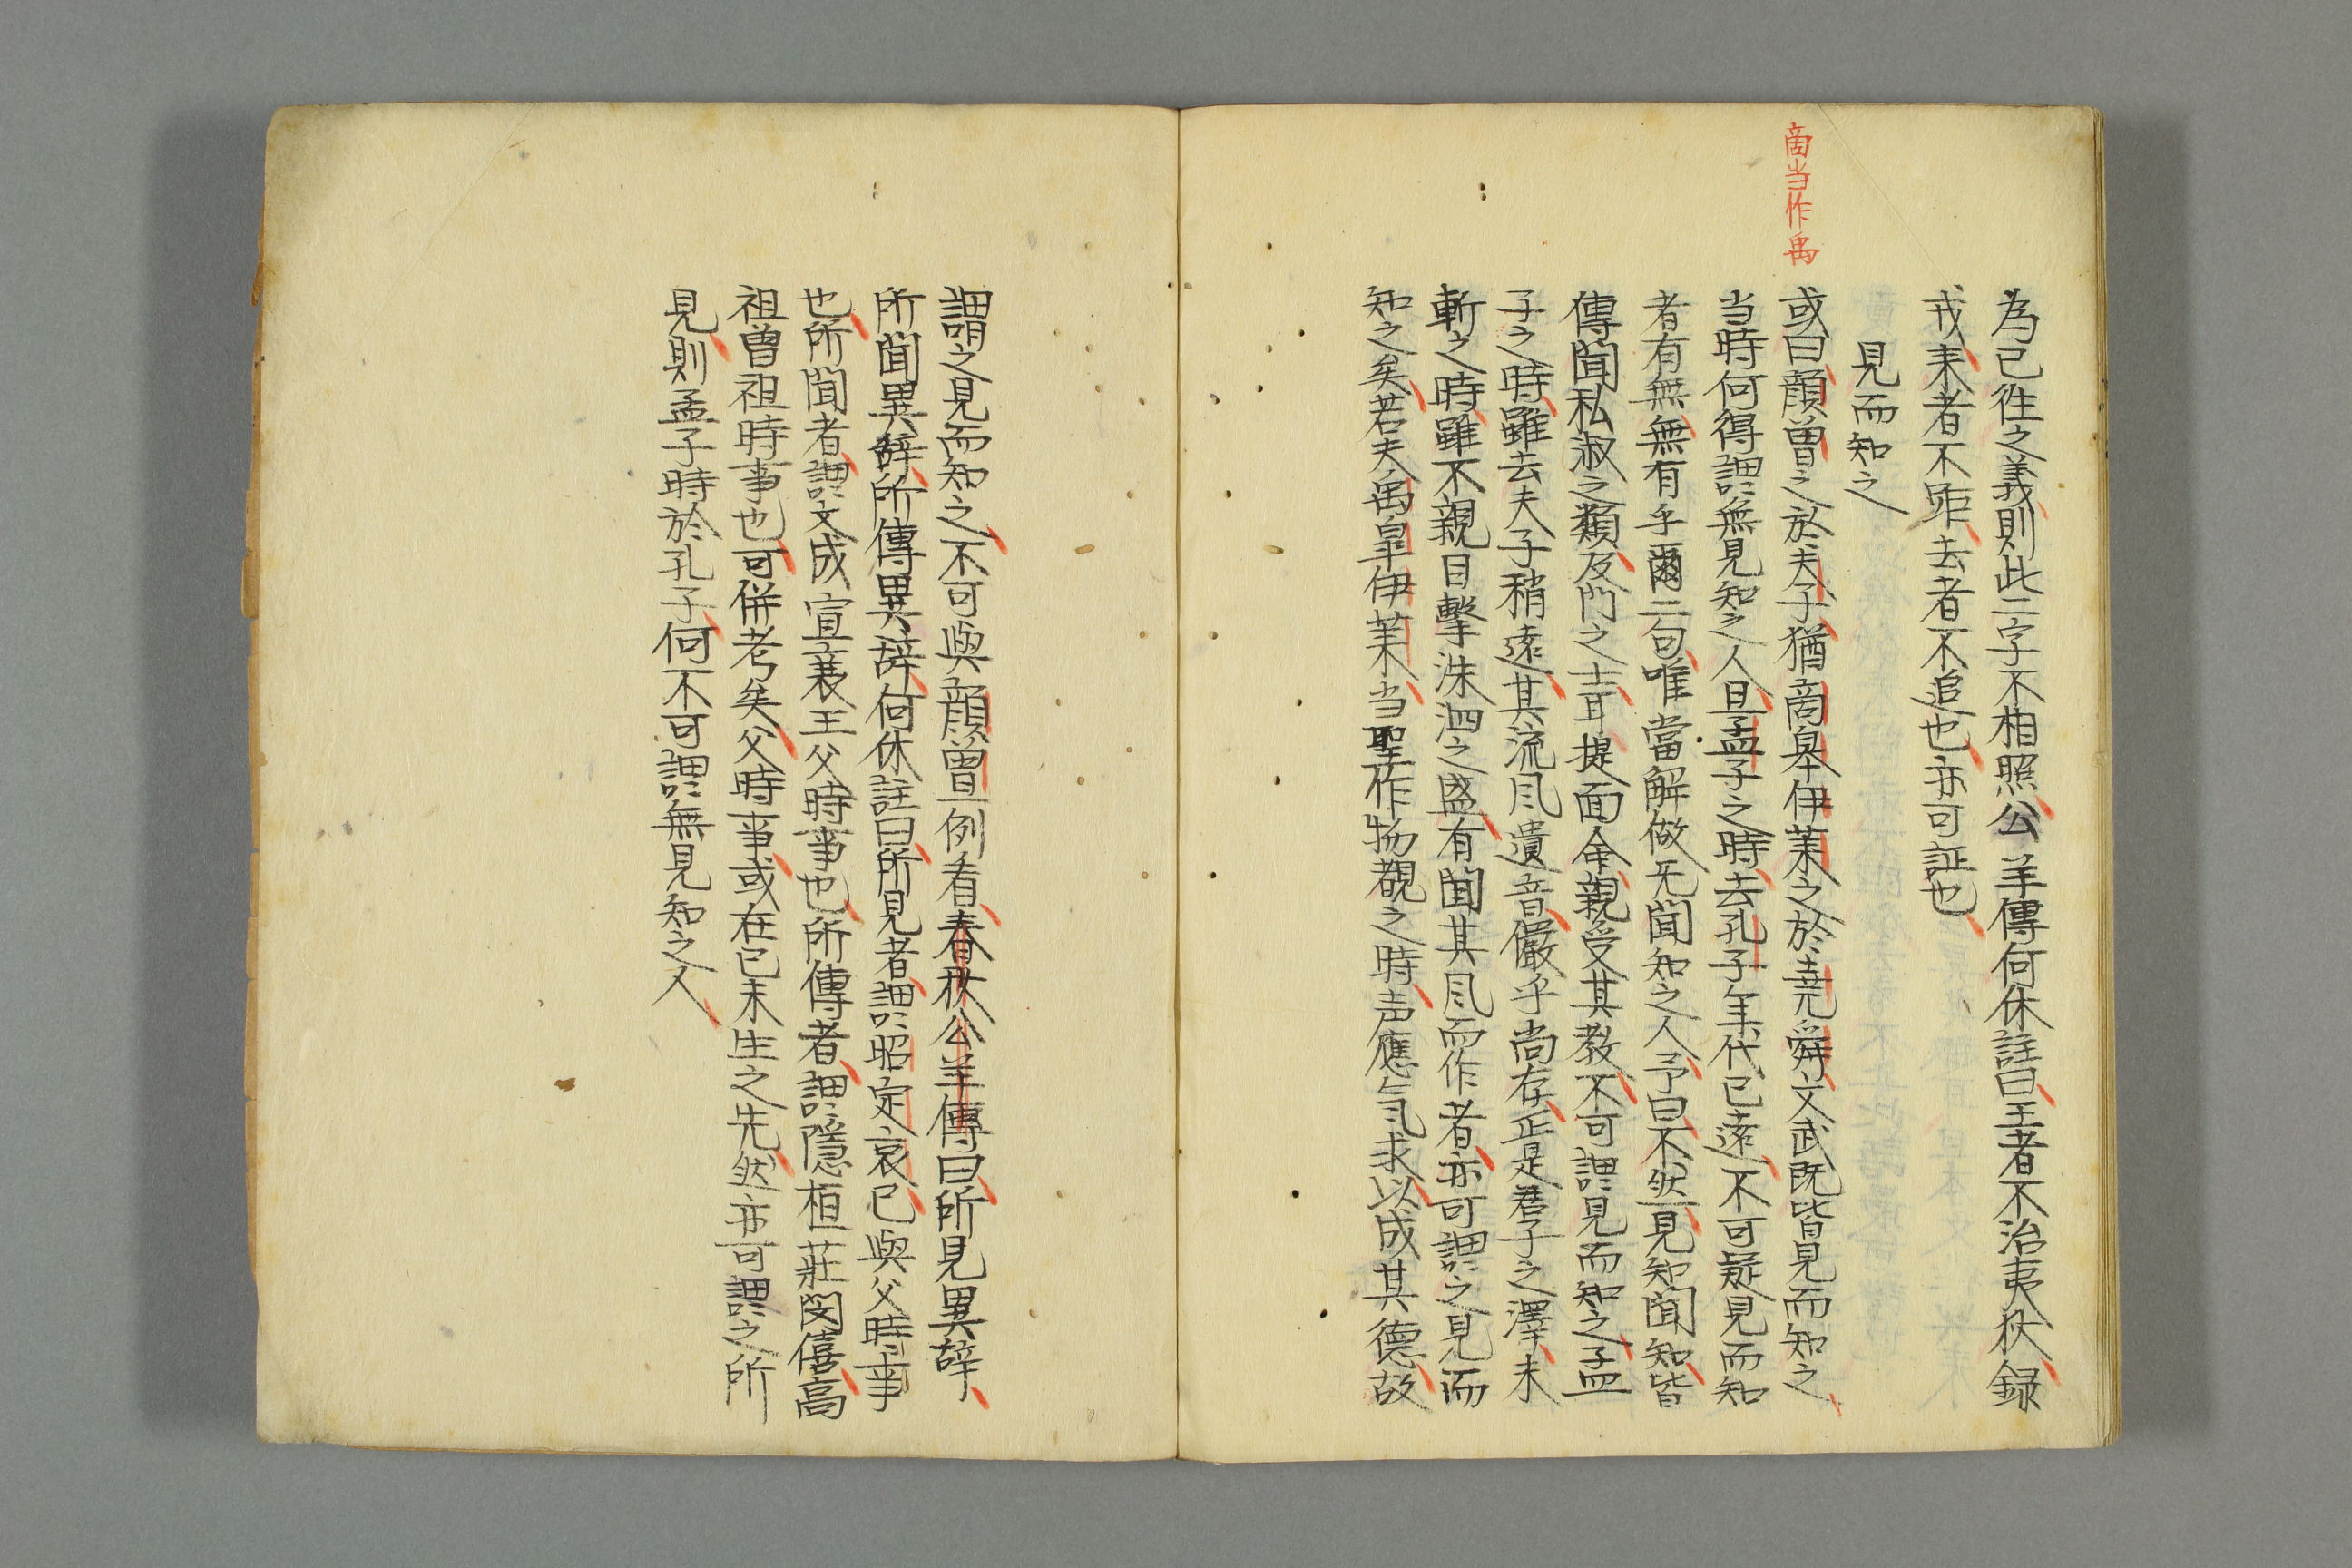 啇当作禹
為已徃之義則此二字不相照公羊傳何休註曰王者不治夷狄録
戎来者不距去者不追也亦可証也
見而知之
或曰顔曽之於夫子猶啇皐伊萊之於堯舜文武既皆見而知之
当時何得謂無見知之人且孟子之時去孔子年代已遠不可疑見而知
者有無無有乎爾二句唯當解做无聞知之人予曰不然見知聞知皆
傳聞私淑之類及門之士耳提面命親受其教不可謂見而知之孟
子之時雖去夫子稍遠其流風遺音儼乎尚存正是君子之澤未
斬之時雖不親目擊洙泗之盛有聞其風而作者亦可謂之見而
知之矣若夫禹皐伊萊当聖作物覩之時声應気求以成其德故
謂之見而知之不可與顔曽一例看春秋公羊傳曰所見異辞
所聞異辞所傳異辞何休註曰所見者謂昭定哀已與父時事
也所聞者謂文成宣襄王父時事也所傳者謂隠桓莊閔僖高
祖曽祖時事也可併考矣父時事或在已未生之先然亦可謂之所
見則孟子時於孔子何不可謂無見知之人